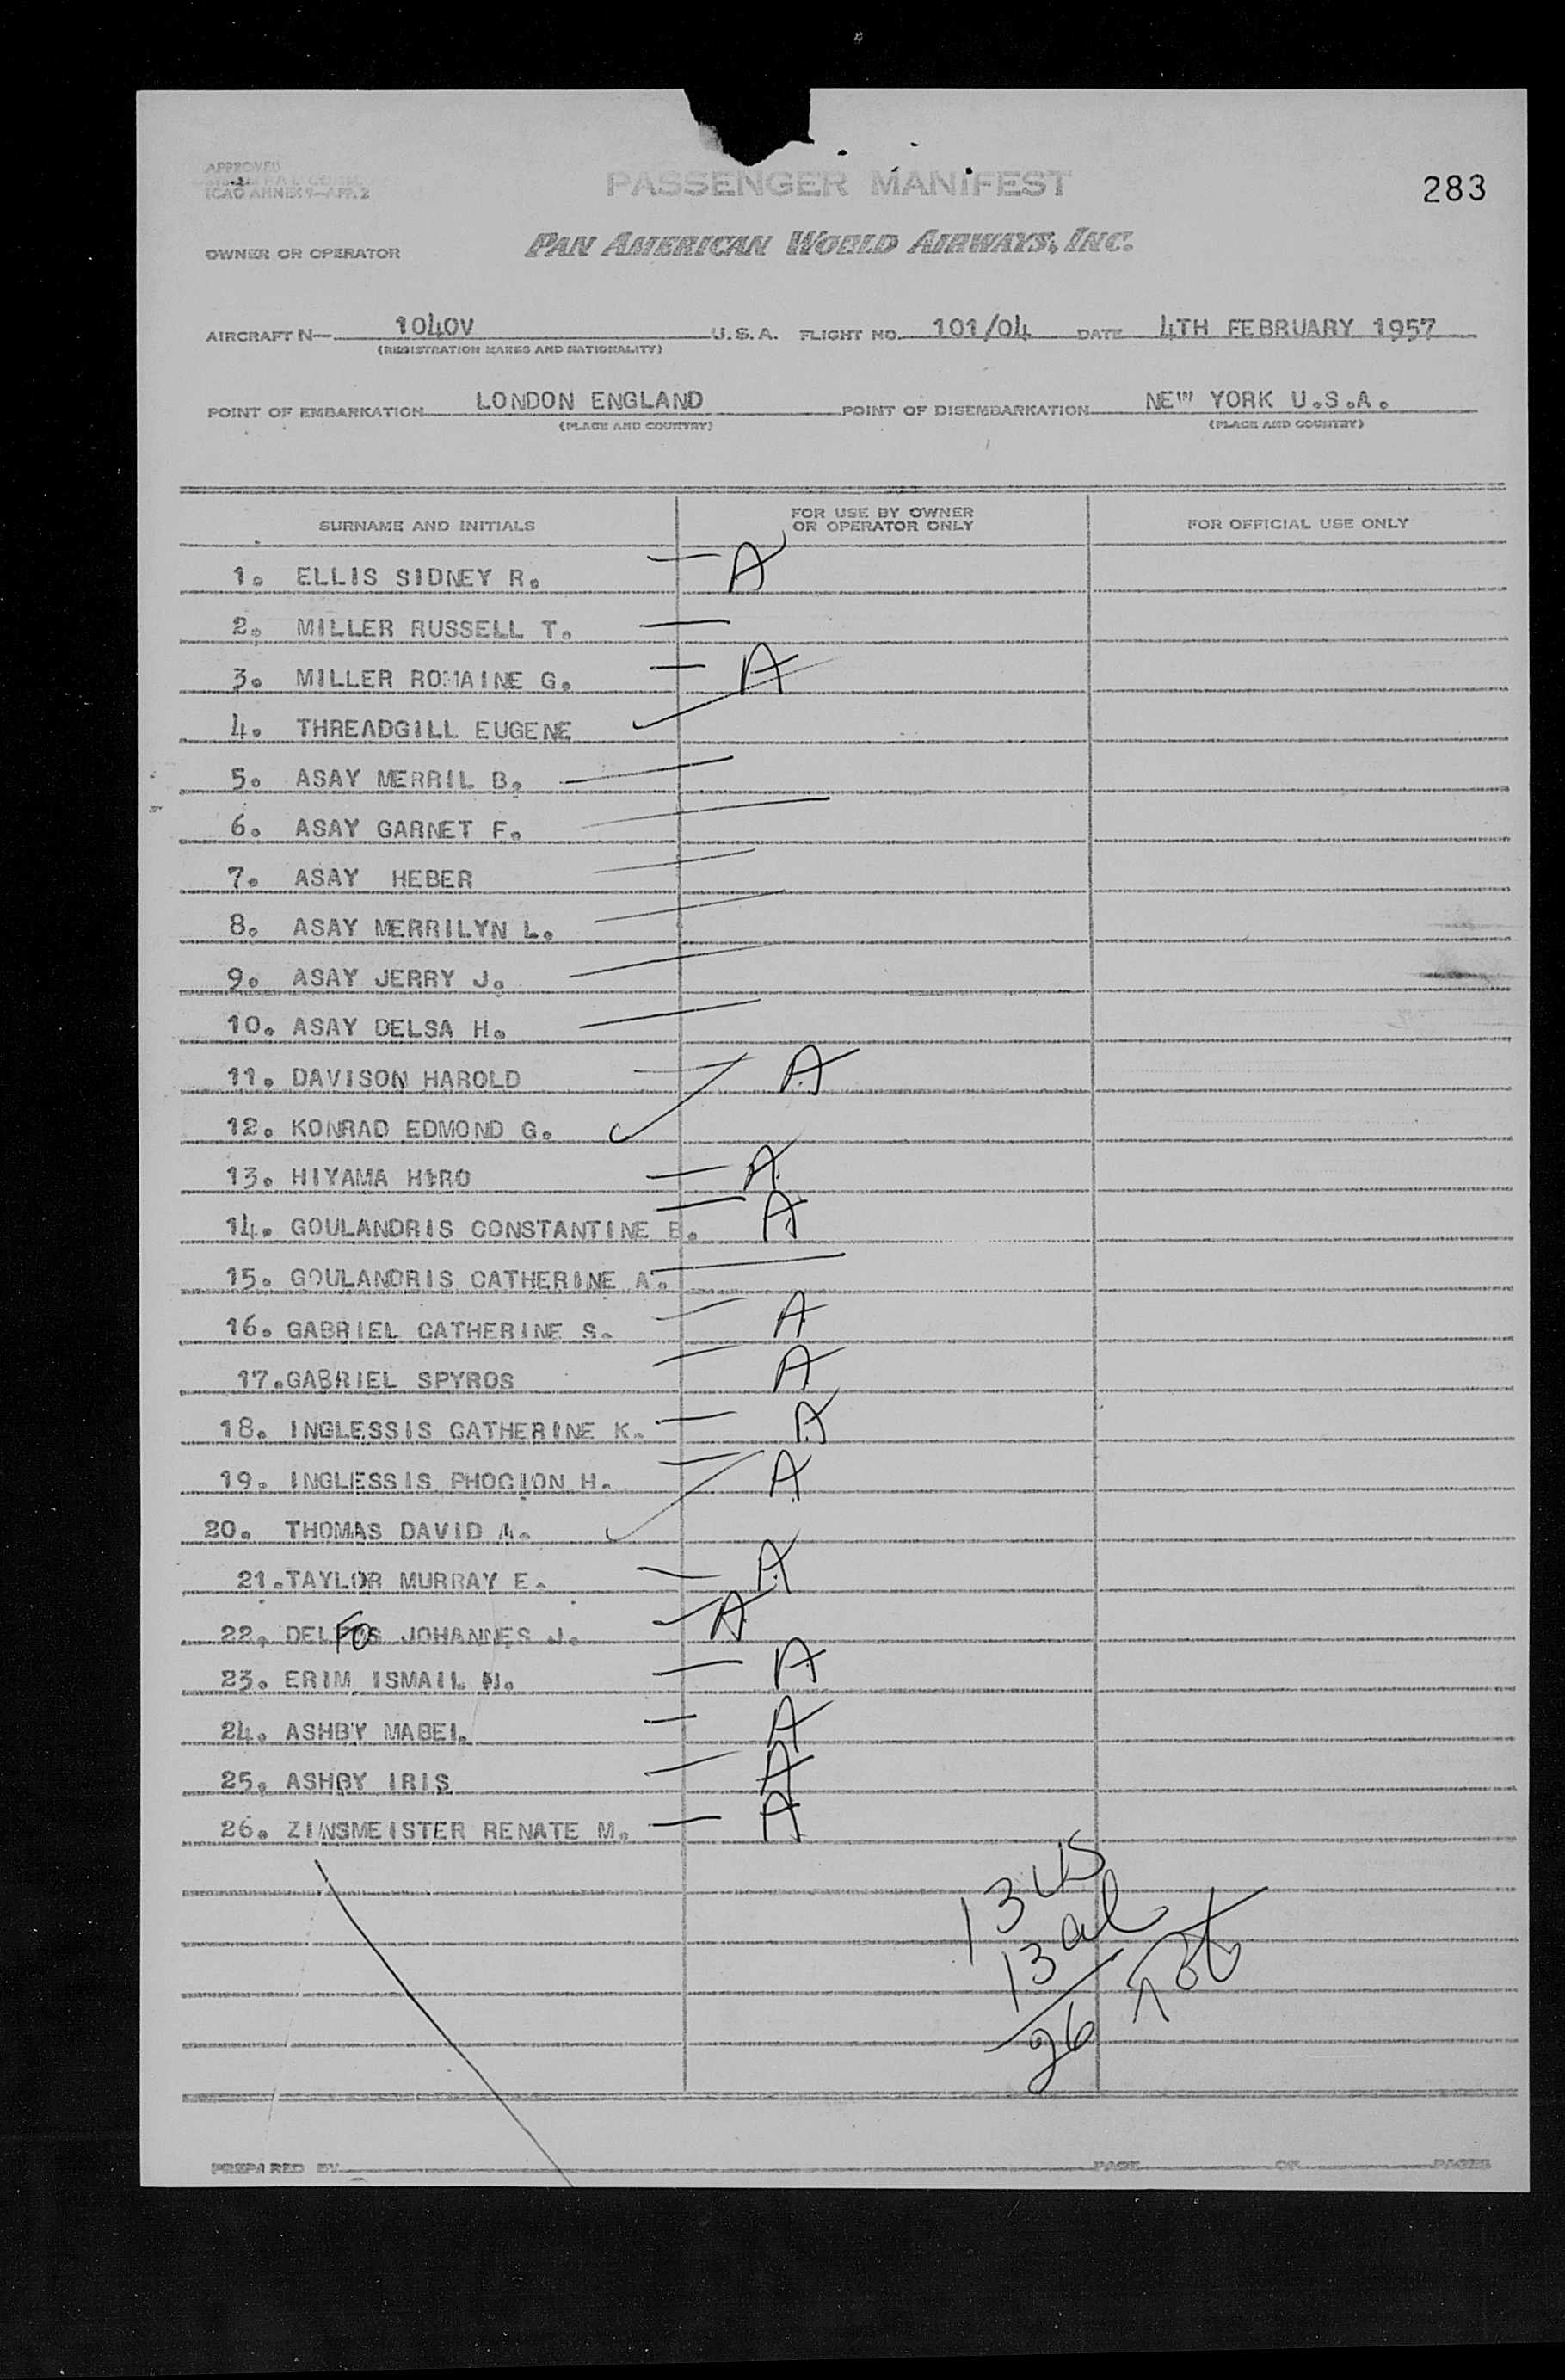 APPROVED
ICAO ANNEX 9—APP. 2
PASSENGER MANIFEST
283
OWNER OR OPERATOR PAN AMERICAN WORLD AIRWAYS, INC.
AIRCRAFT N— 1040V U.S.A. FLIGHT NO. 101/04 DATE 4TH FEBRUARY 1957
(REGISTRATION MARKS AND NATIONALITY)
POINT OF EMBARKATION LONDON ENGLAND POINT OF DISEMBARKATION NEW YORK U.S.A.
(PLACE AND COUNTRY) (PLACE AND COUNTRY)
SURNAME AND INITIALS FOR USE BY OWNER OR OPERATOR ONLY FOR OFFICIAL USE ONLY
1. ELLIS SIDNEY R. — A
2. MILLER RUSSELL T. —
3. MILLER ROMAINE G. — A
4. THREADGILL EUGENE ✓
5. ASAY MERRIL B. —
6. ASAY GARNET F. —
7. ASAY HEBER —
8. ASAY MERRILYN L. —
9. ASAY JERRY J. —
10. ASAY DELSA H. —
11. DAVISON HAROLD — A
12. KONRAD EDMOND G. ✓
13. HIYAMA HIRO — A
14. GOULANDRIS CONSTANTINE B. — A
15. GOULANDRIS CATHERINE A. —
16. GABRIEL CATHERINE S. — A
17. GABRIEL SPYROS — A
18. INGLESSIS CATHERINE K. — A
19. INGLESSIS PHOCION H. — A
20. THOMAS DAVID A. ✓
21. TAYLOR MURRAY E. — A
22. DELFOS JOHANNES J. — A
23. ERIM ISMAIL N. — A
24. ASHBY MABEL — A
25. ASHBY IRIS — A
26. ZINSMEISTER RENATE M. — A
13 US
13 al
26 Tot
PREPARED BY PAGE OF PAGES